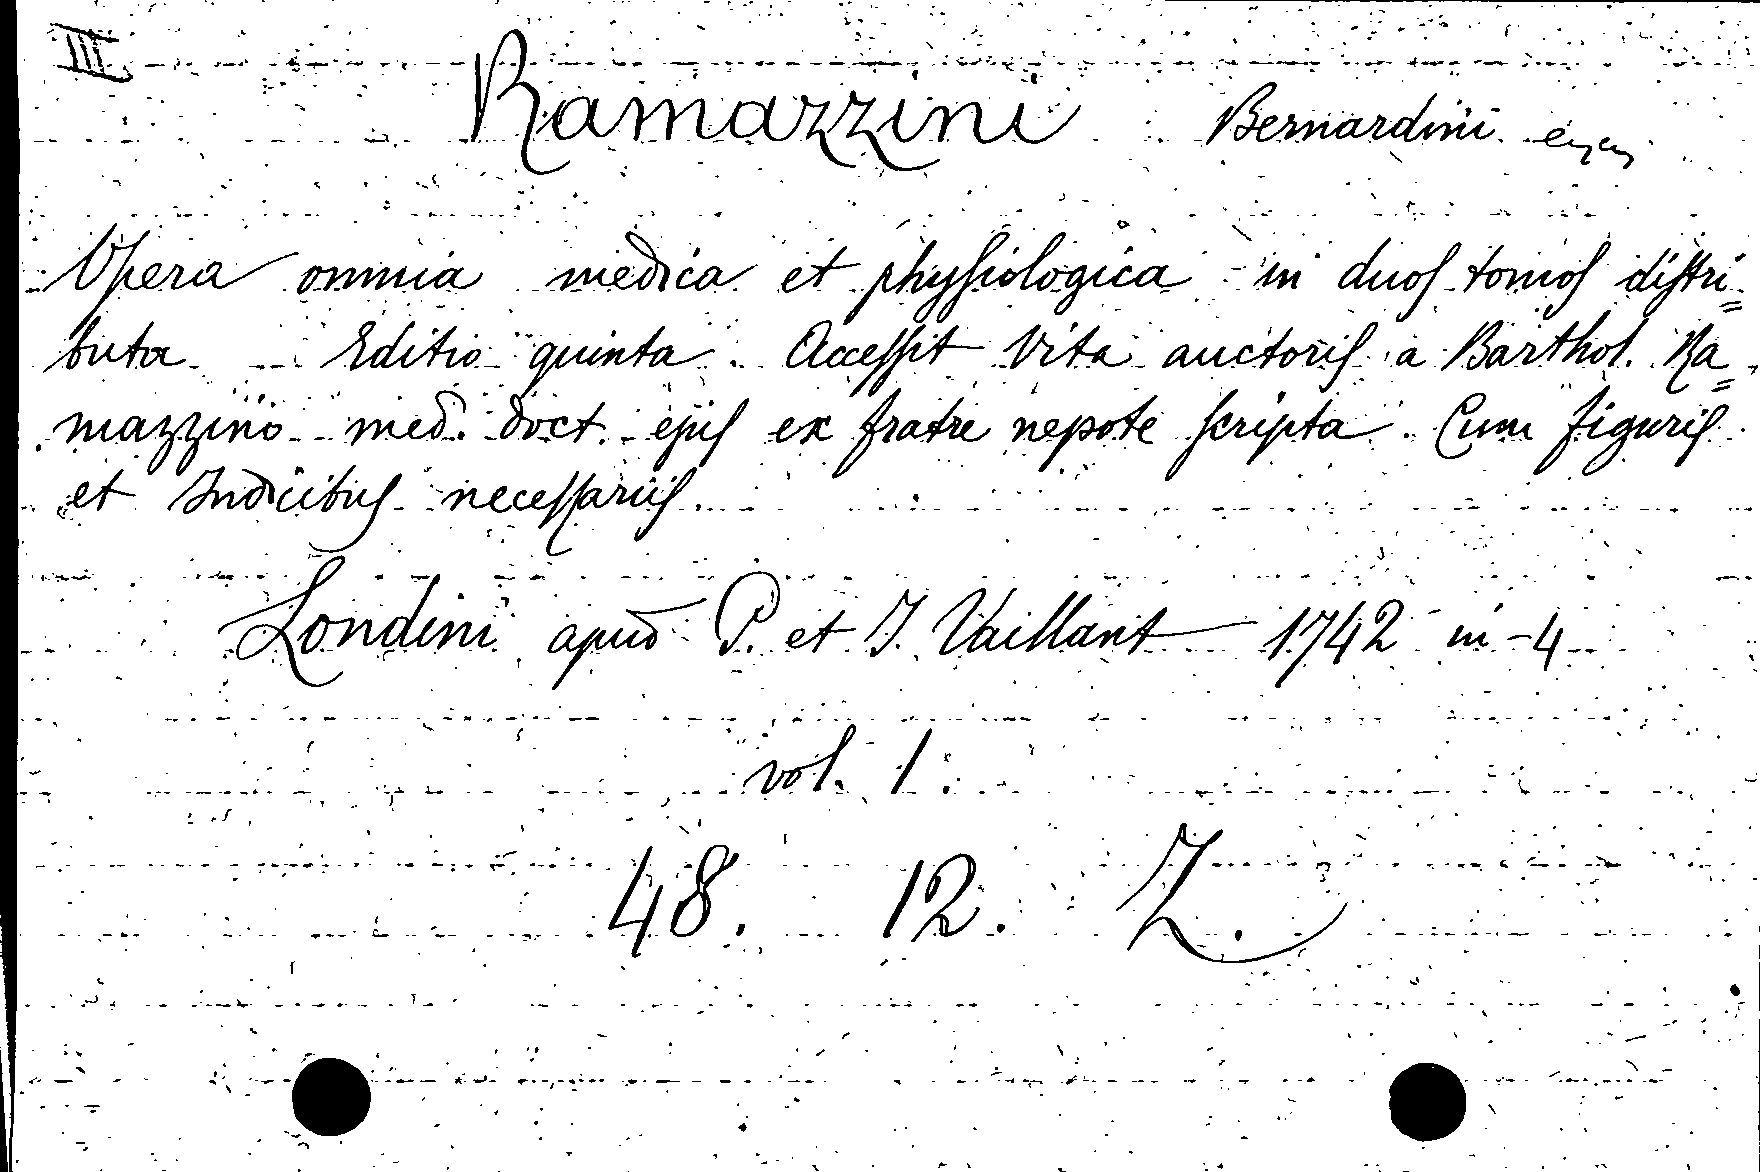 III
Ramazzini Bernardini
Opera omnia medica et physiologica in duos tomos distri=
buta. Editio quinta. Accessit Vita auctoris a Barthol. Ra=
mazzino med. doct. ejus ex fratre nepote scripta. Cum figuris
et Indicibus necessariis.
Londini apud P. et J. Vaillant 1742 in-4
vol. 1.
48. 12. Z.